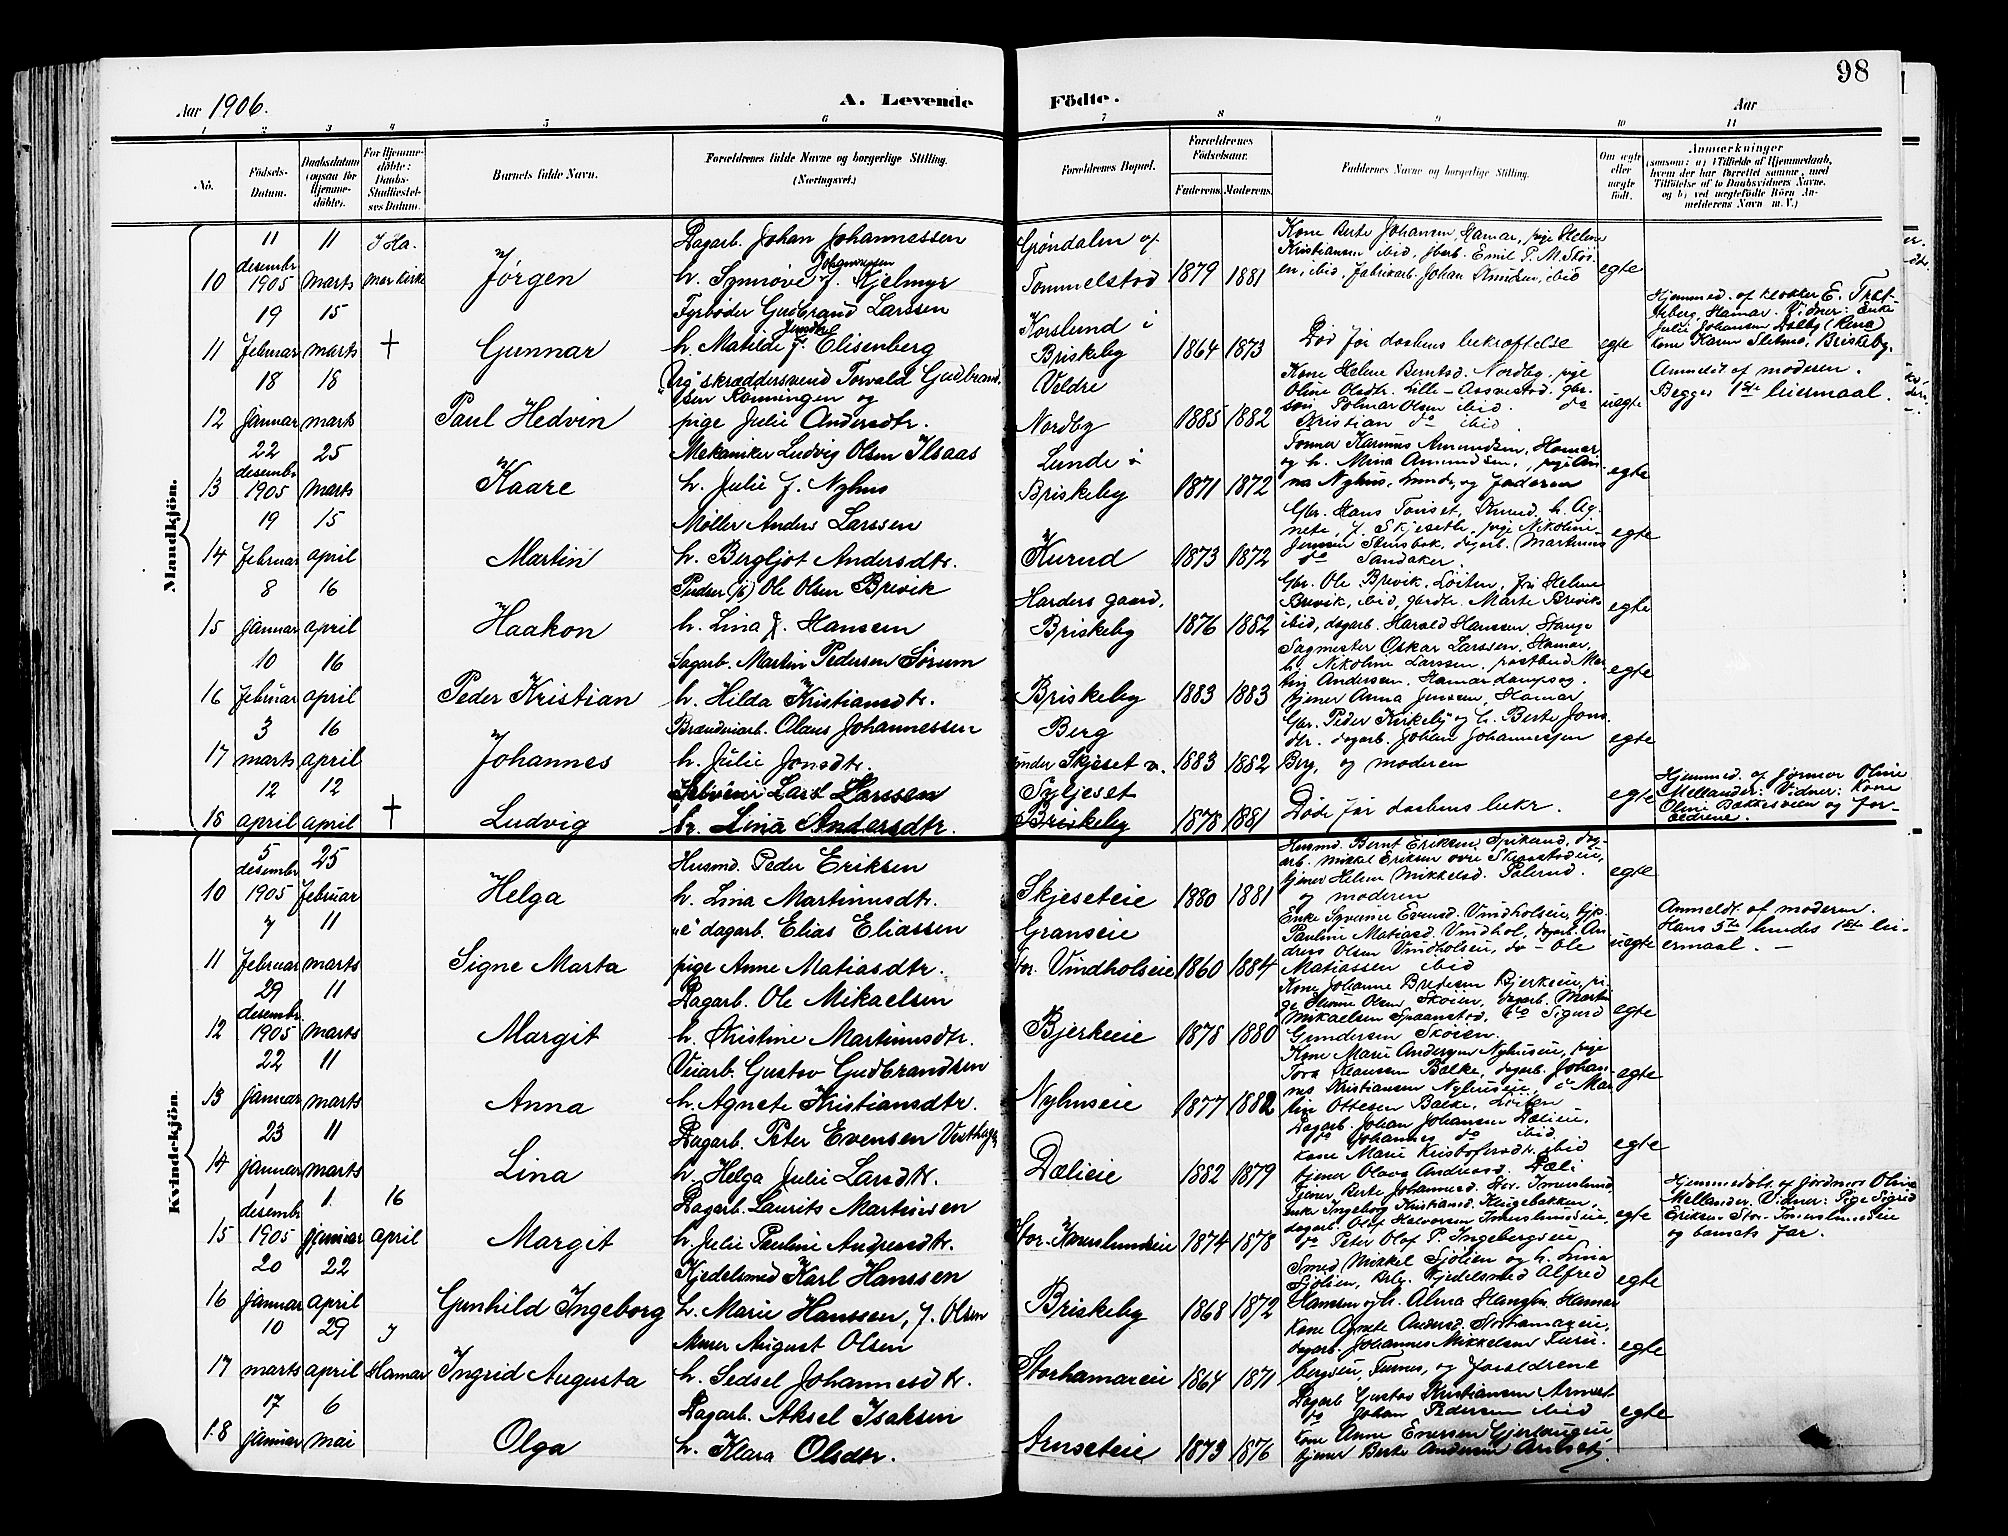 98
Aar 1906.
A. Levende
Födte.
Aar
1 2 3 4 5 6 7 8 9 10 11
No.
Födsels-Datum.
Daabsdatum (ogsaa for Hjemmedöbte).
For Hjemmedöbte: Daabs-Stadfæstelses Datum.
Barnets fulde Navn.
Forældrenes fulde Navne og borgerlige Stilling.
(Næringsvei.)
Forældrenes Bopæl.
Forældrenes Födselsaar.
Faderens. Moderens.
Faddernes Navne og borgerlige Stilling.
Om ægte eller uægte födt.
Anmærkninger
(saasom: a) i Tilfælde af Hjemmedaab, hvem der har forrettet samme, med Tilföielse af to Daabsvidners Navne, og b) ved uægtefödte Börn Anmelderens Navn m. V.)
Mandkjön.
10 11 desembr 1905 11 marts I Hamar kirke Jørgen
Dagarb. Johan Johannessen
h. Synnøve f. Kjelmyr
Grøndalen af Tommelstad 1879 1881
Kone Berte Johansen, Hamar, pige Helene
Kristiansen ibid, fbarb. Emil P. M. Skoien, ibid, fabrikarb. Johan Knudsen, ibid
egte
11 19 februar 15 marts † Gunnar
Fyrbøder Gudbrand Larssen
h. Matilde f. Elisenberg
Korslund i Briskeby 1864 1873
Død før daabens bekræftelse
egte
Hjemmed. af klokker E. Trætteberg, Hamar. Vidner: Enke
Julie Johansen Dalby (Rena)
kone Karen Sletmo, Briskeby.
12 18 januar 18 marts Paul Hedvin
Ug skræddersvend Torvald Gudbrandsen Rønningen og
pige Julie Andersdtr.
Veldre Nordby 1885 1882
Kone Helene Berntsd. Nordby, pige
Oline Olsdtr. Lille-Aasvestad, gbrsøn Solmar Olsen ibid. do
Kristian do ibid.
uegte
Anmeldt af moderen.
Begges 1ste leiermaal.
13 22 desembr 1905 25 marts Kaare
Mekaniker Ludvig Olsen Ilsaas
h. Julie f. Nyhus
Lunde i Briskeby 1871 1872
Tømmer Karinus Amundsen, Hamar,
og h. Mina Amundsen, pige Anna Nyhus, Lunde, og faderen
egte
14 19 februar 15 april Martin
Møller Anders Larssen
h. Bergljot Andersdtr.
Kurud 1873 1872
Gbr. Hans Tønset, Kurud, h. Agnete, f. Skjeseth, pige Nikoline
Jensen Stensbak, dagarb. Martinus
do Sandaker.
egte
15 8 januar 16 april Haakon
Pudser Ole Olsen Brevik
h. Lina f. Hansen
Harders gaard, Briskeby 1876 1882
Gbr. Ole Brevik, Løiten, frk Helene
Brevik, ibid, gbrdtr. Marte Brevik
ibid, dagarb. Harald Hanssen Stange
egte
16 10 februar 16 april Peder Kristian
Sagarb. Martin Pedersen Sørum
h. Hilda Kristiansdtr.
Briskeby 1883 1883
Sagmester Oskar Larssen, Hamar,
h. Nikoline Larssen, postbud Martin Andersen, Hamar dampsag,
tjener Anna Jensen, Hamar
egte
17 3 marts 16 april Johannes
Brænderiarb. Olaus Johannessen
h. Julie Jonsdtr.
Berg under Skjeset v. 1883 1882
Gbr. Peder Kirkeby og h. Berte Jonsdtr. dagarb. Johan Johannessen
Berg, og moderen
egte
18 12 april 12 april † Ludvig
Lars Larssen
h. Lina Andersdtr.
Syljeset Briskeby 1878 1881
Døde før daabens bekr.
egte
Hjemmed. af jormor Oline
Mellander: Vidner: kone
Oline Bakkesveen og forældrene.
Kvindekjön.
10 5 desembr 1905 25 februar Helga
Husmd. Peder Eriksen
h. Lina Martinusdtr.
Skjeseteie 1880 1881
Husmd. Bernt Eriksen Spikerud, dagarb. Mikkel Eriksen øvre Skraastadeie,
tjener Helene Mikkelsd. Palerud.
og moderen
egte
11 7 februar 11 marts Signe Marta
"e" dagarb. Elias Eliassen
pige Anne Matiasdtr.
Granseie Stor. Vindholseie 1860 1884
Enke Syverine Evensd. Vindholseie, pige
Pauline Matiasd. Vindhol, dagarb. Andreas Olsen Vindholseie, do - Ole
Matiassen ibid
uegte
Anmeldt af moderen.
Hans 5te hendes 1ste leiermaal. —
12 29 desembr 1905 11 marts Margit
Dagarb. Ole Mikaelsen
h. Kristine Martinusdtr.
Bjerkeie 1878 1880
Kone Johanne Bredesen Bjerkeie, pige Hanne Olsen Skøien, dagarb. Martin
Mikaelsen Spaanstad, do Sigurd
Gundersen Skøien.
egte
13 22 januar 11 marts Anna
Veiarb. Gustav Gudbrandsen
h. Agnete Kristiansdtr.
Nyhuseie 1877 1882
Kone Marie Andersen Nyhuseie, pige
Tora Klaussen Bakke, dagarb. Johannes Kristiansen Nyhuseie, do Martin Ottesen Bakke, Løiten
egte
14 23 januar 11 marts Lina
Dagarb. Peter Evensen Vesthage
h. Helga Julie Larsdtr.
Dælieie 1882 1879
Dagarb. Johan Johansen Dælieie,
do Johannes do ibid
kone Marie Kristoffersdtr. ibid
tjener Olava Andreasd. Dæli
egte
15 1 desembr 1905 1. januar 16 april Margit
Dagarb. Laurits Martinsen
h. Julie Pauline Andreasdtr.
Stor-Imerslundeie 1874 1878
Tjener Berte Johannesd. Stor. Imerslund,
enke Ingeborg Kristiansd. Klugebakken,
dagarb. Olaf Halvorsen Imerslundeie,
do Peter Olaf P. Ingebergseie
egte
Hjemmedøbt af jordmor Oline
Mellander. Vidner: Pige Sigrid
Eriksen Stor-Imerslundeie
og barnets far.
16 20 januar 22 april Gunhild Ingeborg
Kjedelsmed Karl Hanssen
h. Marie Hanssen, f. Olsen
Briskeby 1868 1872
Smed Mikkel Sjølien og h. Lina
Sjølien, Brby. Kjedelsmed Alfred
Hanssen og h. Alma Hanssen Hamar
egte
17 10 marts 29 april I Hamar Ingrid Augusta
Murer August Olsen
h. Sedsel Johannesdtr.
Storhamareie 1864 1871
Kone Agnete Andersd. Storhamareie,
dagarb. Johannes Mikkelsen Furubergseie, Furnes, og forældrene
egte
18 17 januar 6 mai Olga
Dagarb. Aksel Isaksen
h. Klara Olsdtr.
Arnseteie 1873 1876
Dagarb Gustav Kristiansen Arnset
do Johan Pedersen ibid
kone Anne Enersen Gjerlaugeie
tjener Berte Andersen Arnset
egte